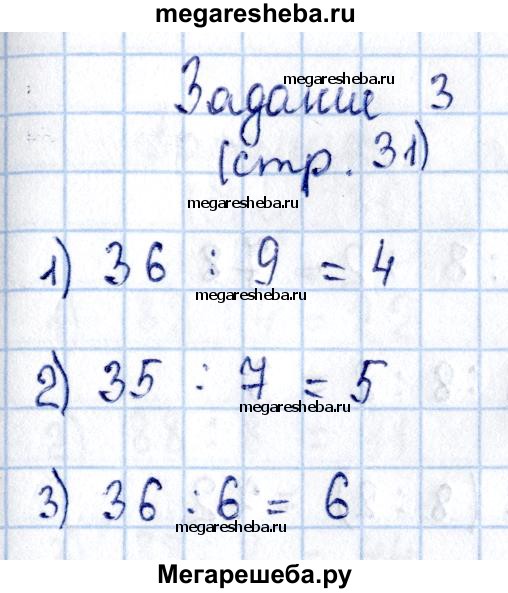 megaresheba.ru
megaresheba.ru
Задание 3
(стр. 31)
megaresheba.ru
1) 36 : 9 = 4
megaresheba.ru
2) 35 : 7 = 5
megaresheba.ru
3) 36 : 6 = 6
megaresheba.ru
Мегарешеба.ру